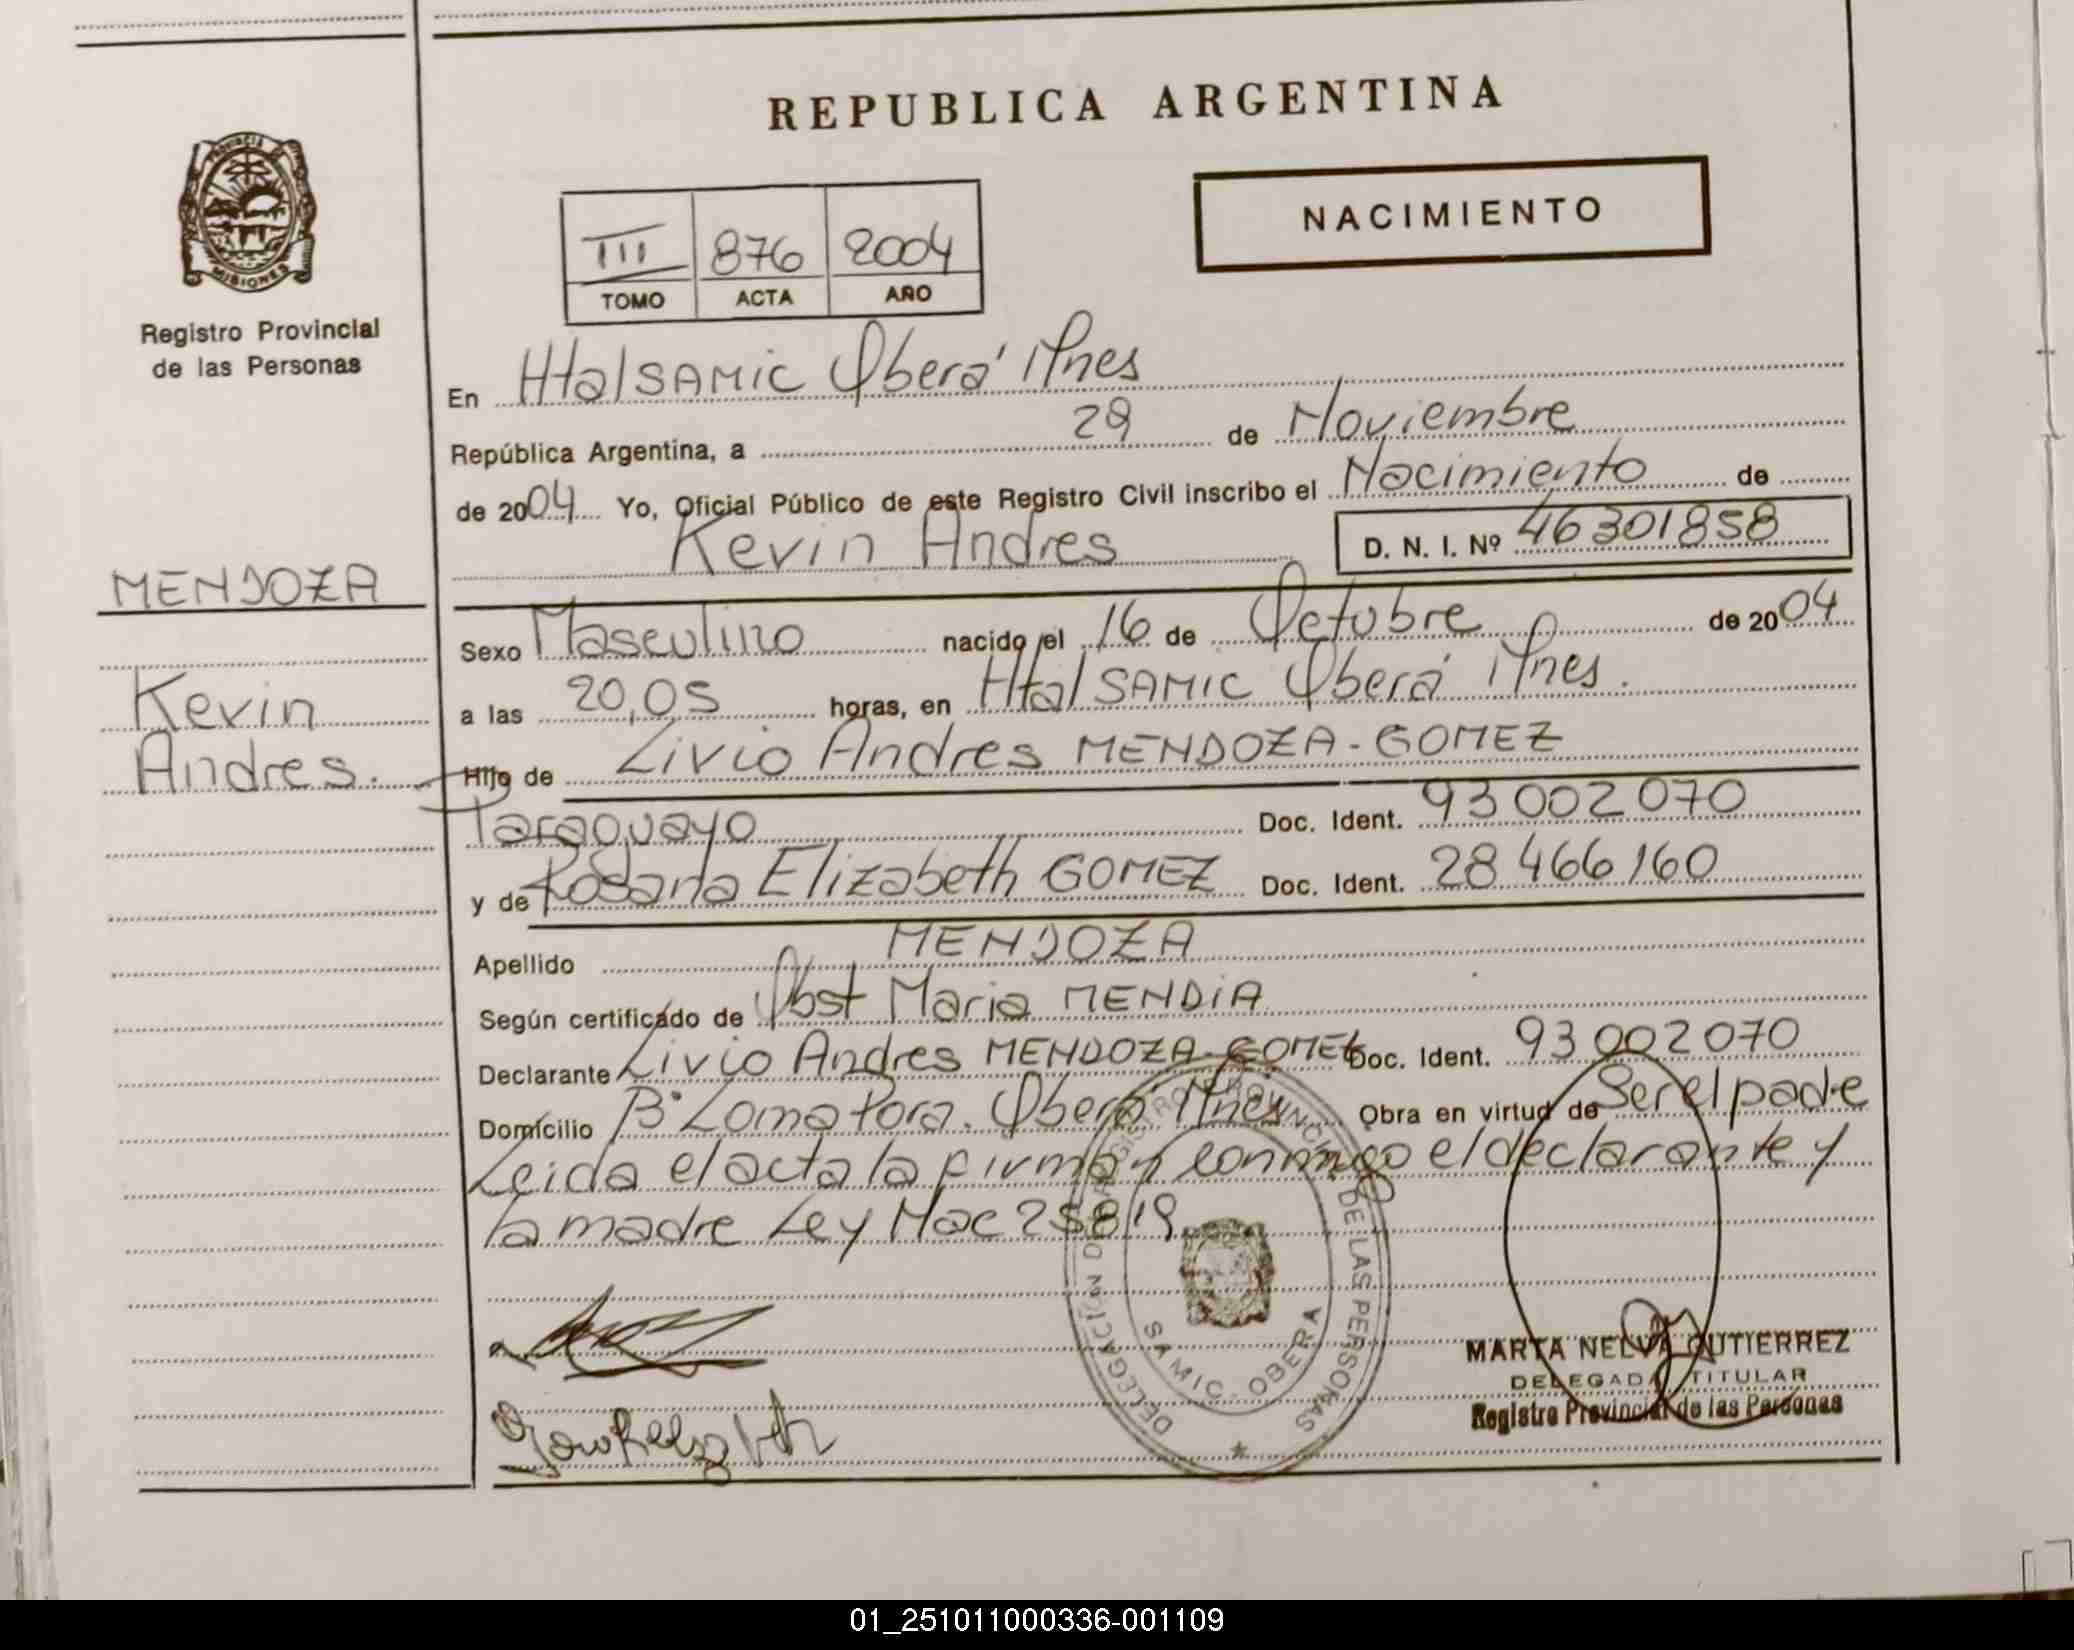 REPUBLICA ARGENTINA
NACIMIENTO
III 876 2004
TOMO ACTA AÑO
PROVINCIA DE
MISIONES
Registro Provincial
de las Personas
En Htal SAMIC Oberá Mnes
República Argentina, a 29 de Noviembre
de 2004 Yo, Oficial Público de este Registro Civil inscribo el Nacimiento de
Kevin Andres D. N. I. Nº 46301858
MENDOZA
Kevin
Andres.
Sexo Masculino nacido el 16 de Octubre de 2004
a las 20,05 horas, en Htal SAMIC Oberá Mnes.
Hijo de Livio Andres MENDOZA-GOMEZ
Paraguayo Doc. Ident. 93 002 070
y de Rosana Elizabeth GOMEZ Doc. Ident. 28 466 160
Apellido MENDOZA
Según certificado de Obst Maria MENDIA
Declarante Livio Andres MENDOZA-GOMEZ Doc. Ident. 93 002 070
Domicilio Bº Loma Pora. Oberá Mnes Obra en virtud de Ser el padre
Leida el acta la firman conmigo el declarante y
la madre Ley Nac 25819
DELEGACION REGISTRO PROVINCIAL DE LAS PERSONAS
SAMIC - OBERA
MARTA NELVA GUTIERREZ
DELEGADA TITULAR
Registro Provincial de las Personas
01_251011000336-001109